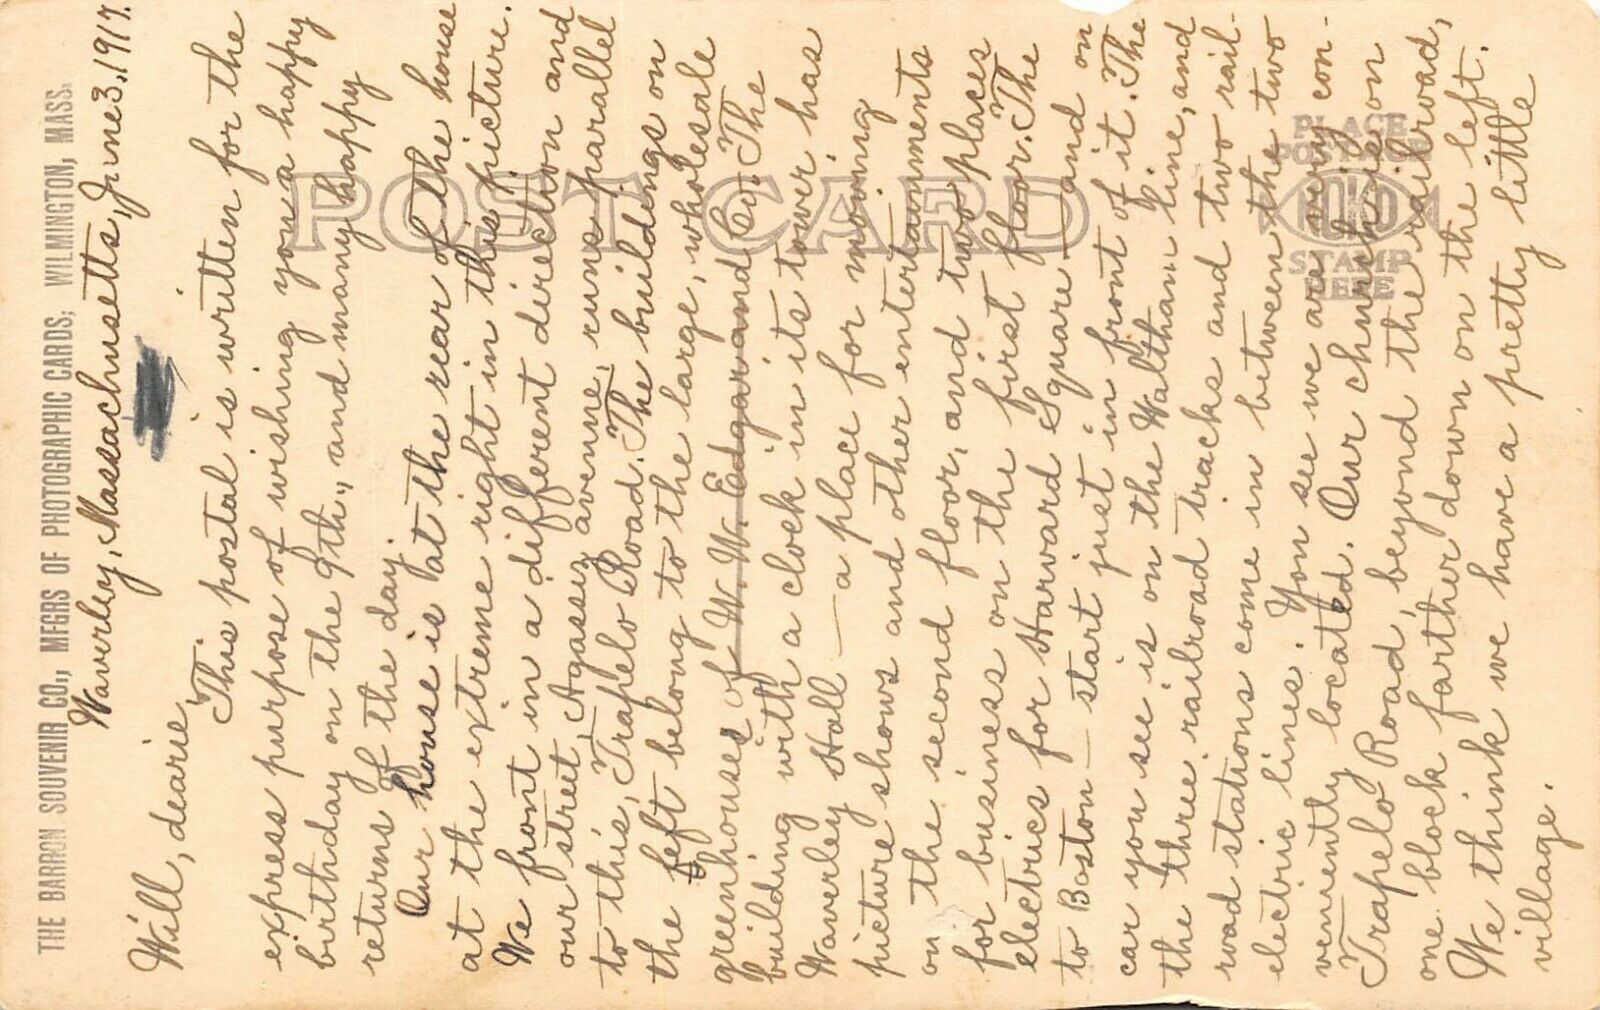 THE BARRON SOUVENIR CO., MFGRS OF PHOTOGRAPHIC CARDS, WILMINGTON, MASS.
POST CARD
PLACE
POSTAGE
STAMP
HERE
Waverley, Massachusetts, June 3, 1917.
Will, dearie,
This postal is written for the
express purpose of wishing you a happy
birthday on the 9th., and many happy
returns of the day.
Our house is at the rear of the house
at the extreme right in this picture.
We front in a different direction and
our street, Agassiz avenue, runs parallel
to this, Trapelo Road. The buildings on
the left belong to the large, wholesale
greenhouses of W. W. Edgar and Co. The
building with a clock in its tower has
Waverley Hall — a place for moving
picture shows and other entertainments
on the second floor, and two places
for business on the first floor. The
electrics for Harvard Square - and on
to Boston — start just in front of it. The
car you see is on the Waltham line, and
the three railroad tracks and two rail-
road stations come in between the two
electric lines. You see we are very con-
veniently located. Our church is on
Trapelo Road, beyond the railroad,
one block farther down on the left.
We think we have a pretty little
village.